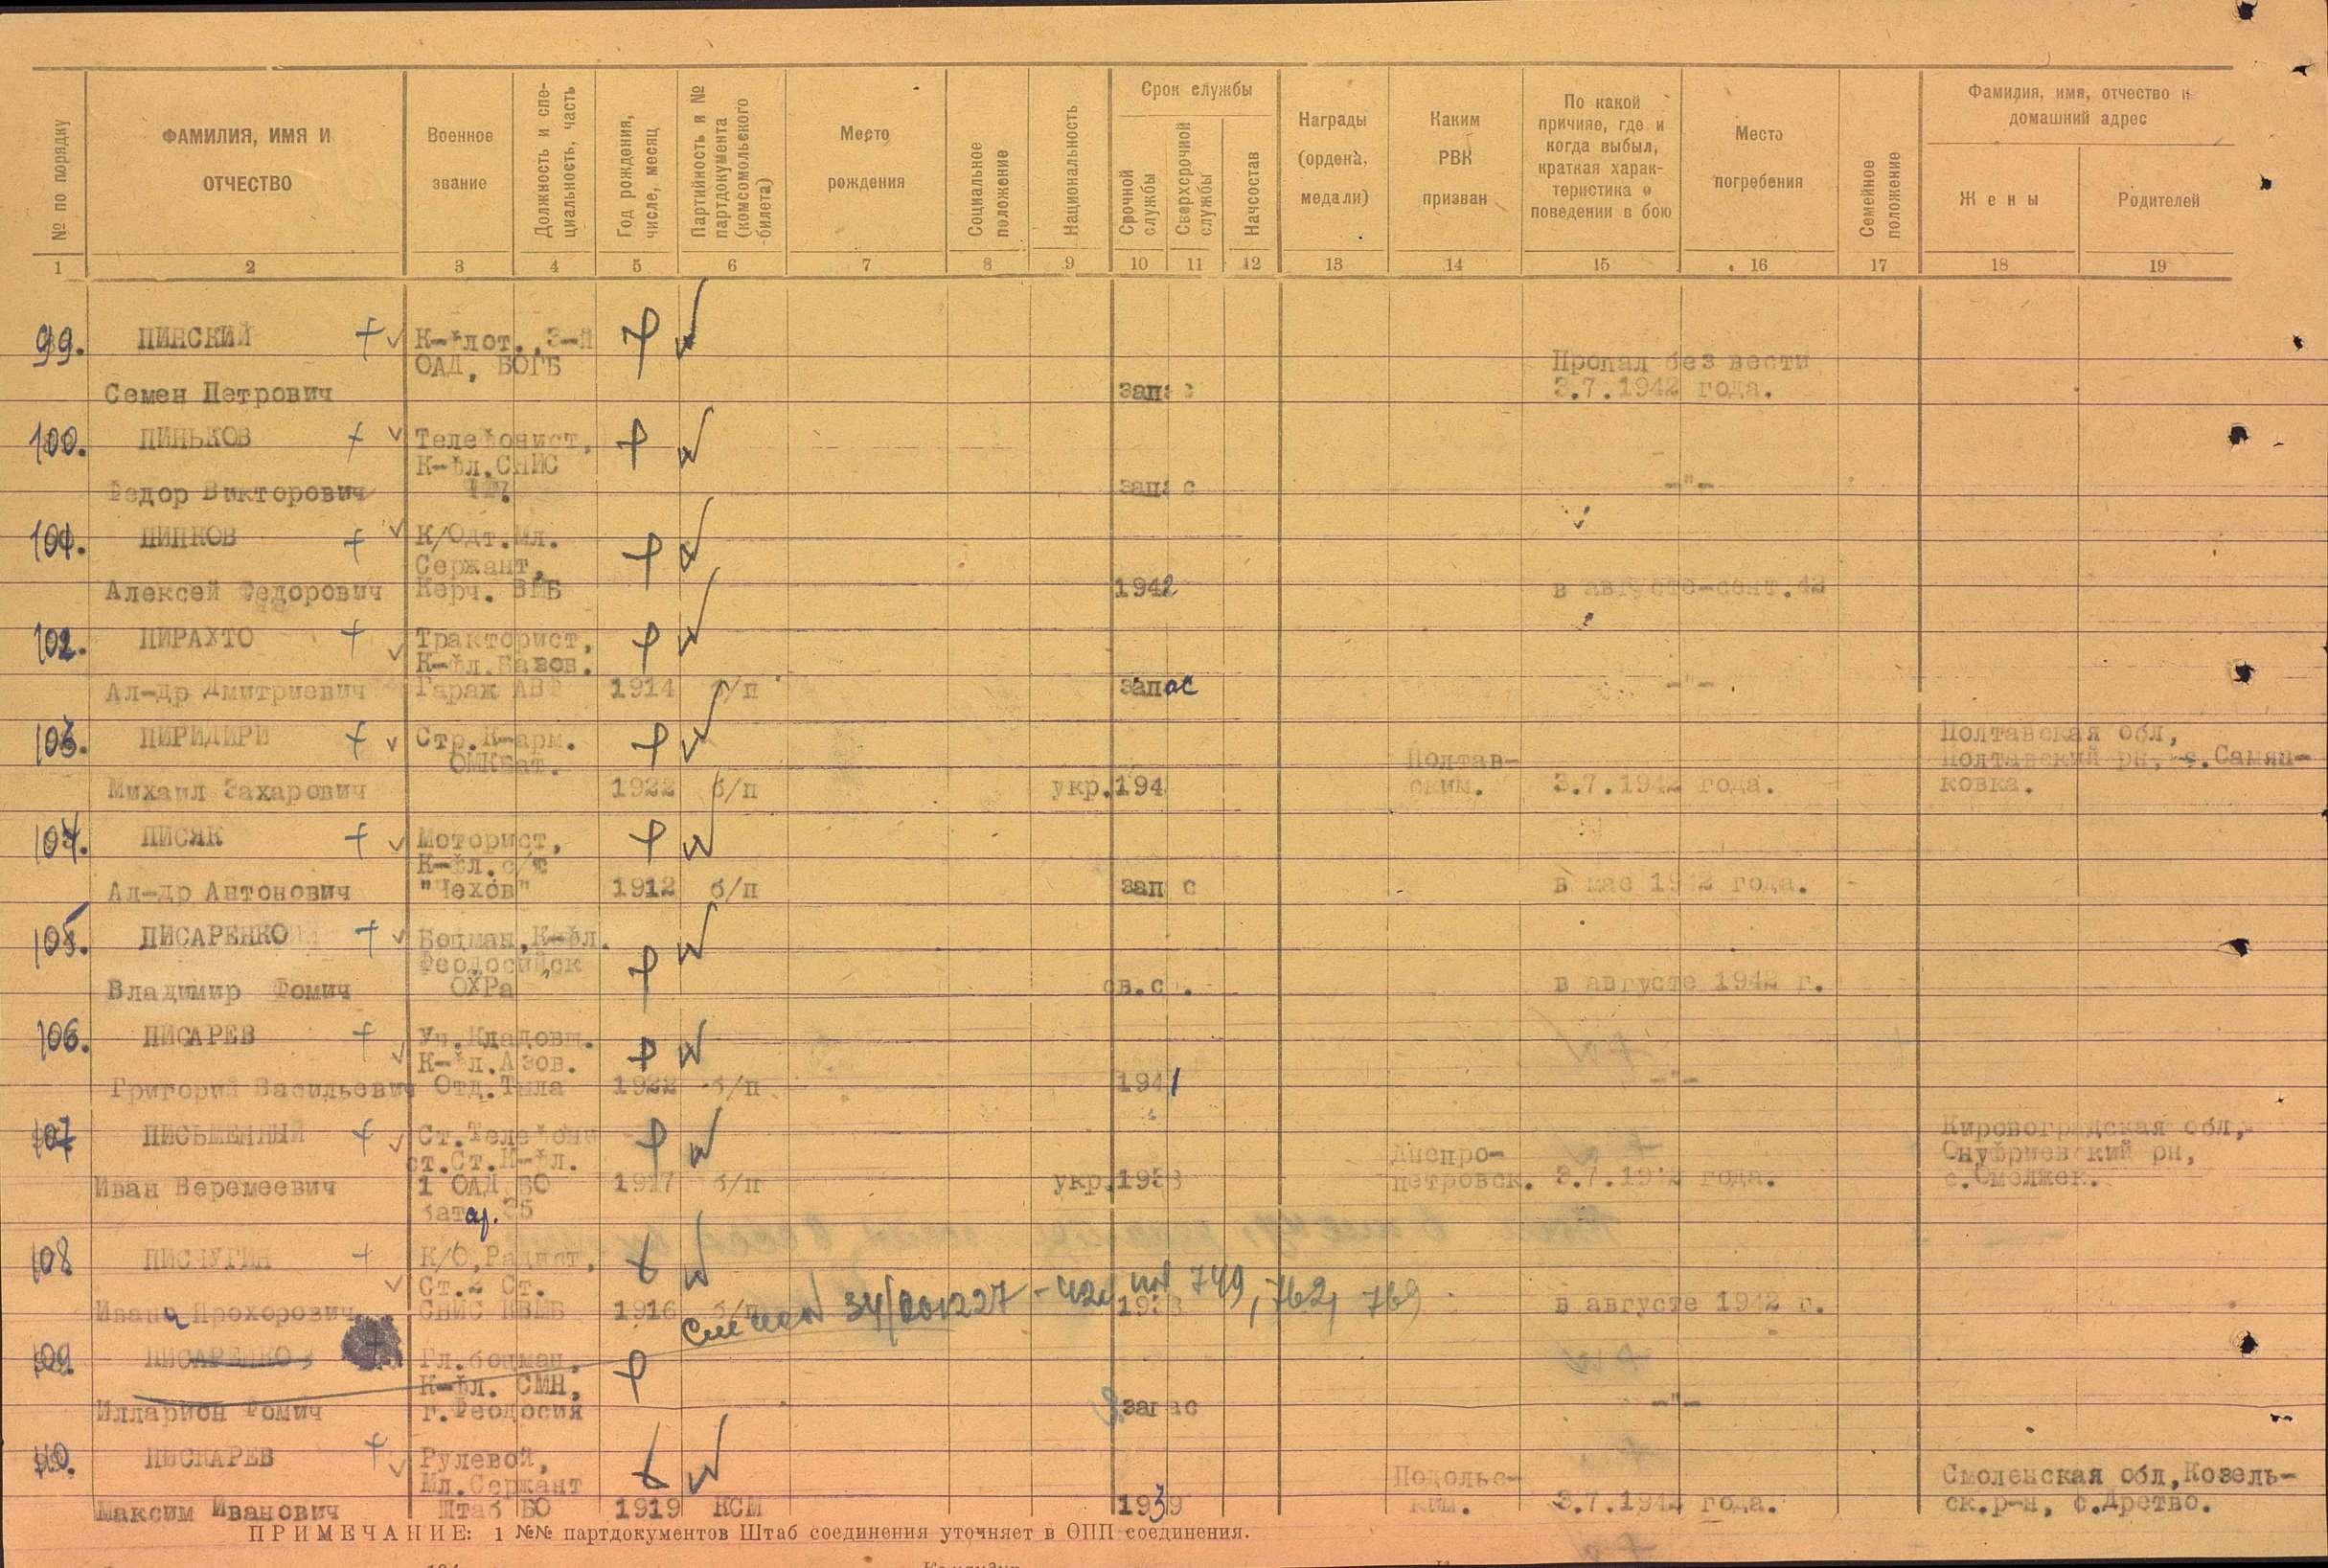 № по порядку
ФАМИЛИЯ, ИМЯ И
ОТЧЕСТВО
Военное
звание
Должность и спе-
циальность, часть
Год рождения,
число, месяц
Партийность и №
партдокумента
(комсомольского
билета)
Место
рождения
Социальное
положение
Национальность
Срок службы
Срочной
службы
Сверхсрочной
службы
Начсостав
Награды
(ордена,
медали)
Каким
РВК
призван
По какой
причине, где и
когда выбыл,
краткая харак-
теристика о
поведении в бою
Место
погребения
Семейное
положение
Фамилия, имя, отчество и
домашний адрес
Жены
Родителей
1 2 3 4 5 6 7 8 9 10 11 12 13 14 15 16 17 18 19
99. ПИНСКИЙ К-флот., 3-й
ОАД, БОГБ Пропал без вести
Семен Петрович запас 3.7.1942 года.
100. ПИНЬКОВ Телефонист,
К-фл. СНИС
Федор Викторович запас -"-
101. ПИПКОВ К/Одт. Мл.
Сержант,
Алексей Федорович Керч. ВМБ 1942 в августе-сент. 42
102. ПИРАХТО Тракторист,
К-фл.
Ал-др Дмитриевич Гараж 1914 б/п запас -"-
103. ПИРИДИРИ Стр. К-арм. Полтавская обл,
Полтав- Полтавский рн, с. Самян-
Михаил Захарович 1922 б/п укр. 194 ским. 3.7.1942 года. ковка.
104. ПИСЯК Моторист,
К-фл. с/т
Ал-др Антонович "Чехов" 1912 б/п запас в мае 1942 года.
105. ПИСАРЕНКО Боцман, К-фл.
Феодосийск
Владимир Фомич ОХРа св.с. в августе 1942 г.
106. ПИСАРЕВ Уч. Кладовщ.
К-фл. Азов.
Григорий Васильевич Отд. Тыла 1922 б/п 1941 -"-
107 ПИСЬМЕННЫЙ Ст. Телефони Кировоградская обл,
ст. Ст. К-фл. Днепро- Онуфриевский рн,
Иван Веремеевич 1 ОАД БО 1917 б/п укр. 1938 петровск. 3.7.1942 года.
батар. 35
108 ПИСЧУГИН К/О, Радист,
Ст. 2 Ст.
Иван Прохорович СНИС КВМБ 1916 б/п 1938 в августе 1942 г.
749, 762, 769
109. ПИСАРЕНКО Гл. боцман,
К-фл. СМН,
Илларион Фомич г. Феодосия запас -"-
110. ПИСКАРЕВ Рулевой,
Мл. Сержант Подольс- Смоленская обл, Козель-
Максим Иванович Штаб БО 1919 КСМ 1939 ким. 3.7.1942 года. ск. р-н, с. Дретво.
ПРИМЕЧАНИЕ: 1 №№ партдокументов Штаб соединения уточняет в ОПП соединения.